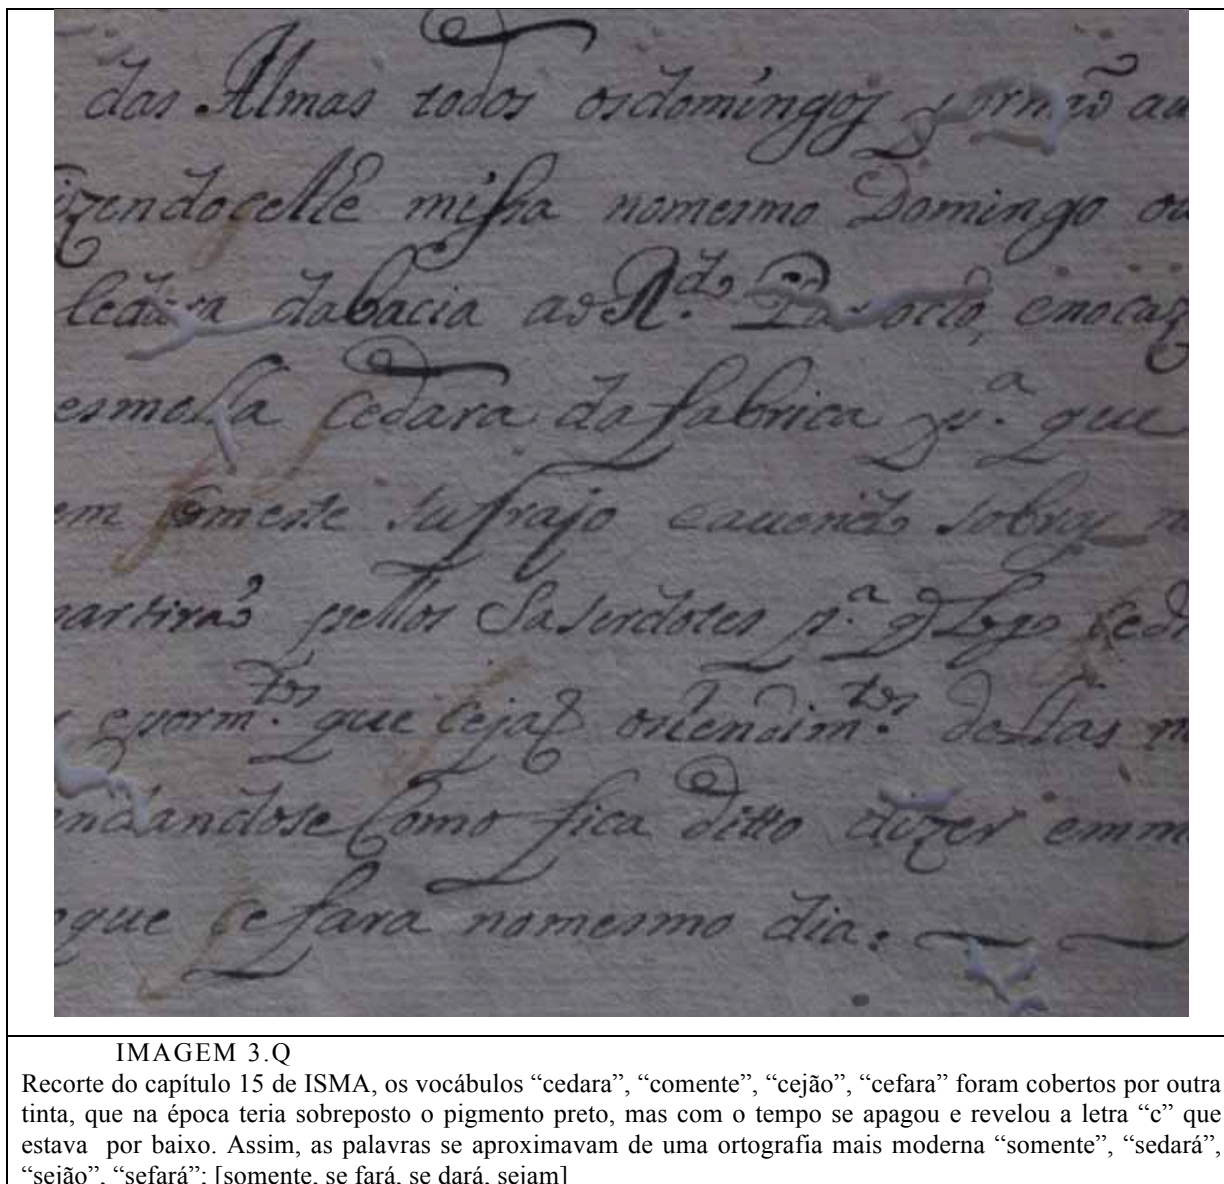 das Almas todos osdomingos
celle missa nomesmo Domingo
dabacia ao R.do emocaz
esmolla cedara dafabrica p.a que
em comente sufrajo sobre
pellos Saserdotes p.a q Logo
eporm.tos que cejaõ orendim.tos destas
Como fica ditto dizer
cefara nomesmo dia.
IMAGEM 3.Q
Recorte do capítulo 15 de ISMA, os vocábulos “cedara”, “comente”, “cejão”, “cefara” foram cobertos por outra
tinta, que na época teria sobreposto o pigmento preto, mas com o tempo se apagou e revelou a letra “c” que
estava por baixo. Assim, as palavras se aproximavam de uma ortografia mais moderna “somente”, “sedará”,
“sejão”, “sefará”: [somente, se fará, se dará, sejam]